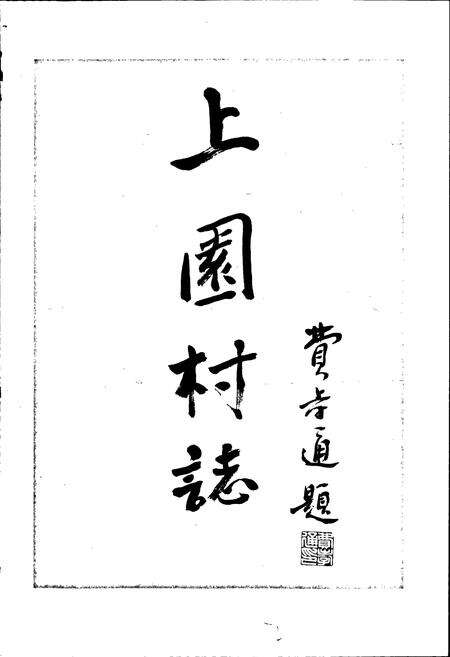 上園村誌
費孝通題